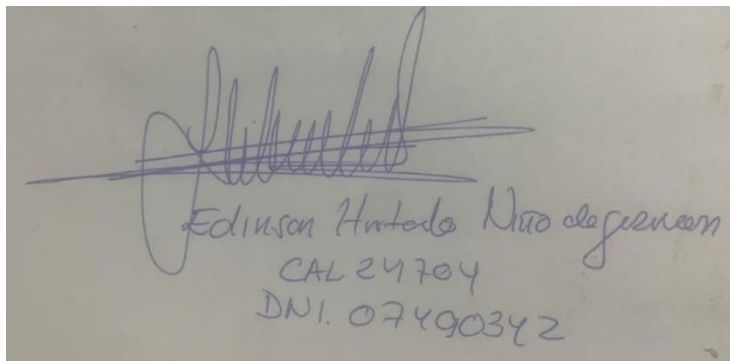 Edinson Hurtado Niño de guzman
CAL 24704
DNI. 07490342